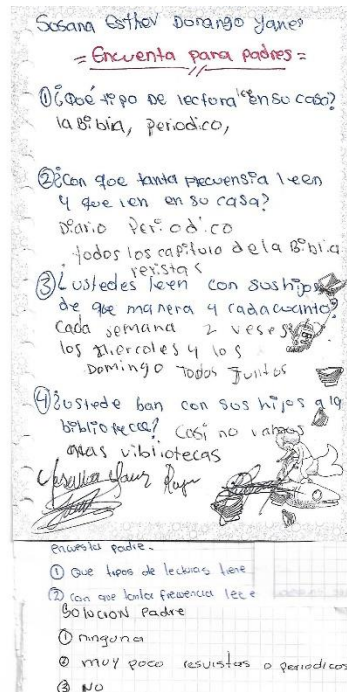 Sosana Esther Dorango Yanes
= Encuenta para padres =
① ¿Qoé tipo de lectura leen en su casa?
la Biblia, periodico,
② ¿Con qoe tanta frecuensia leen
y que len en su casa?
Diario Periodico
todos los capitulo de la Biblia
revistas
③ ¿ustedes leen con sus hijos
de que manera y cada cuanto?
Cada semana 2 veses
los miercoles y los
Domingo Todos Juntos
④ ¿ustede ban con sus hijos a la
biblioteca? Casi no vamos
alas vibliotecas
encuesta padre.
① Que tipos de lecturas tiene
② Con que tanta frecuencia lee
Solucion Padre
① ninguna
② muy poco resvistas o periodicos
③ No